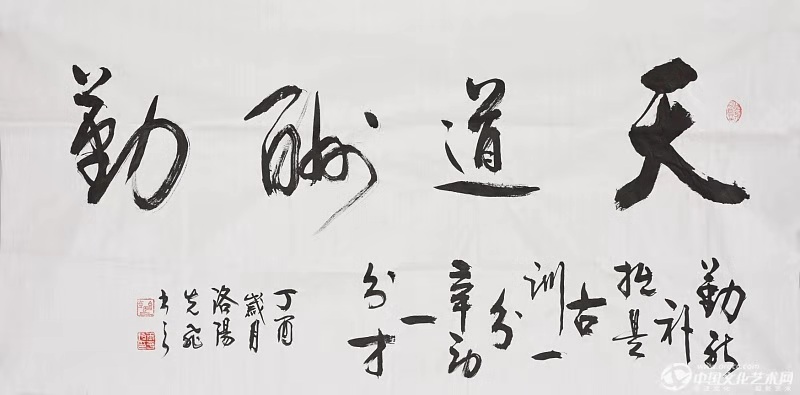 天道酬勤
勤能
补
拙是
古
训一
分
辛劳
一
分才
丁酉
歲月
洛陽
先飛
书之
中国文化艺术网